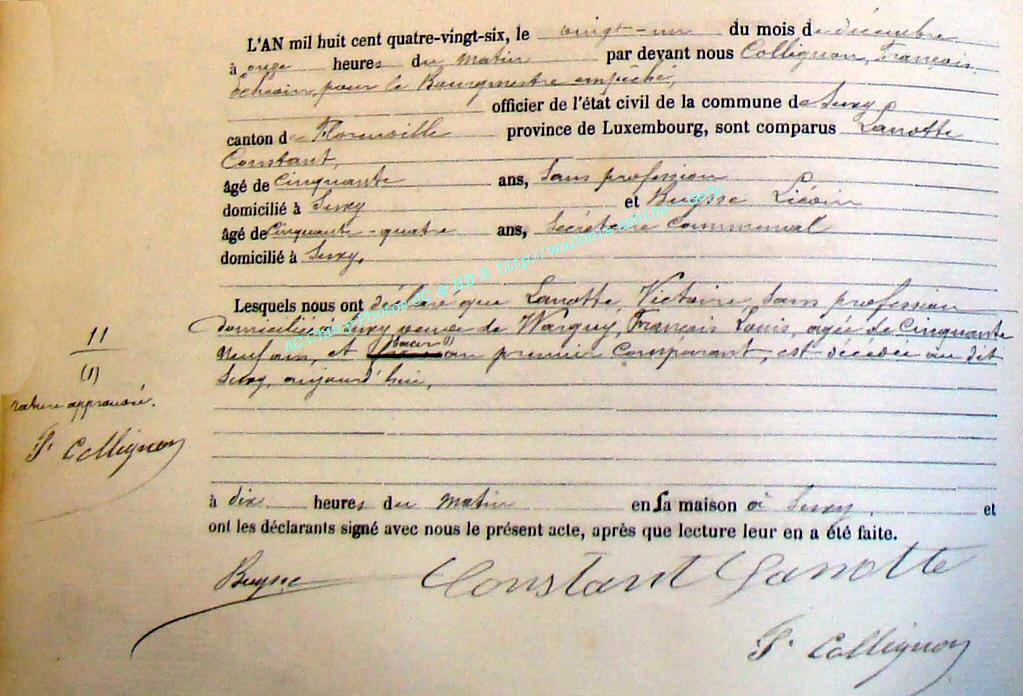 L'AN mil huit cent quatre-vingt-six, le vingt-un du mois de décembre
à onze heures du matin par devant nous Collignon, François,
échevin, pour le Bourgmestre empêché,
officier de l'état civil de la commune de Suxy,
canton de Florenville province de Luxembourg, sont comparus Lanotte
Constant,
âgé de cinquante ans, sans profession
domicilié à Suxy et Buysse Liévin
âgé de cinquante-quatre ans, secrétaire communal
domicilié à Suxy,
Lesquels nous ont déclaré que Lanotte, Victoire, sans profession
domiciliée à Suxy veuve de Warguy, François Louis, agée de cinquante
neuf ans, et soeur (1) au premier comparant, est décédée au dit
Suxy, aujourd'hui,
11
(1)
rature approuvée.
F. Collignon
à dix heures du matin en sa maison à Suxy, et
ont les déclarants signé avec nous le présent acte, après que lecture leur en a été faite.
Buysse Constant Lanotte
F. Collignon